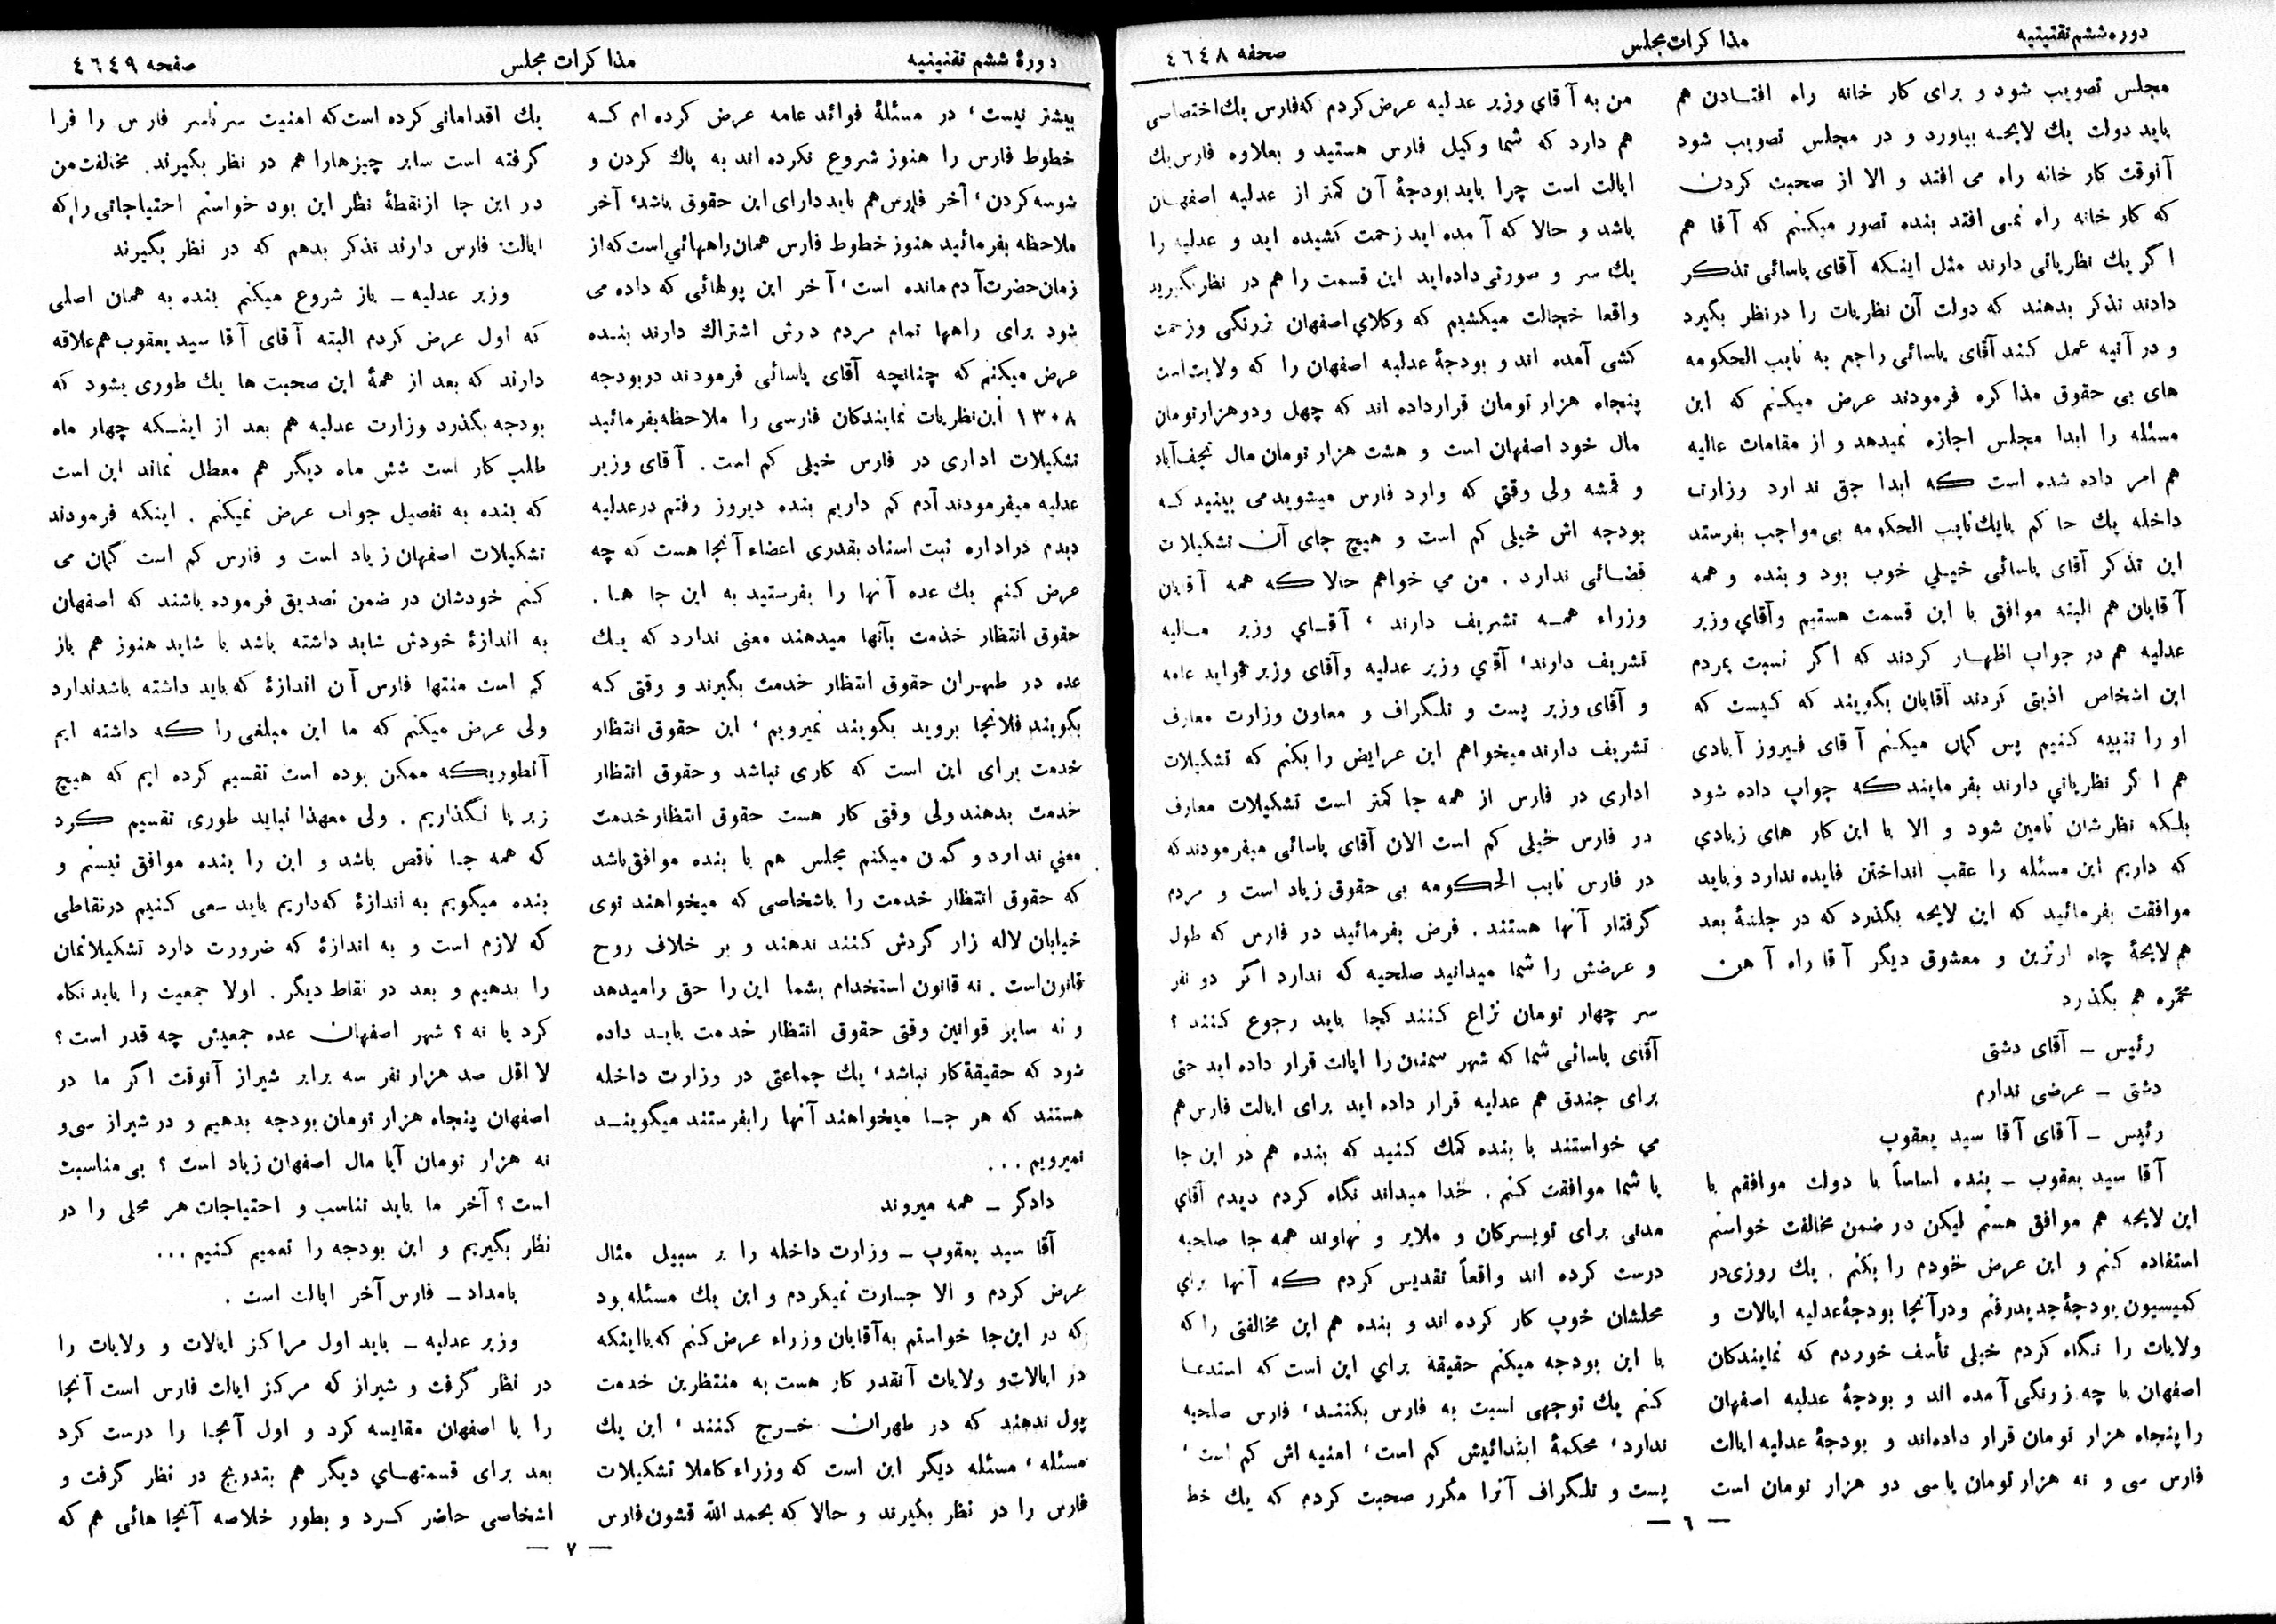 دوره ششم تقنینیه
مذاکرات مجلس
صحفه ٤٦٤٨
مجلس تصویب شود و برای کار خانه راه افتادن هم
باید دولت یك لایحه بیاورد و در مجلس تصویب شود
آنوقت کار خانه راه می افتد و الا از صحبت کردن
که کار خانه راه نمی افتد بنده تصور میکنم که آقا هم
اگر یك نظریاتی دارند مثل اینکه آقای یاسائی تذکر
دادند تذکر بدهند که دولت آن نظریات را در نظر بگیرد
و در آتیه عمل کند آقای یاسائی راجع به نایب الحکومه
های بی حقوق مذاکره فرمودند عرض میکنم که این
مسئله را ابدا مجلس اجازه نمیدهد و از مقامات عالیه
هم امر داده شده است که ابدا حق ندارد وزارت
داخله یك حاکم یایك نایب الحکومه بی مواجب بفرستد
این تذکر آقای یاسائی خیلی خوب بود و بنده و همه
آقایان هم البته موافق با این قسمت هستیم وآقای وزیر
عدلیه هم در جواب اظهار کردند که اگر نسبت بمردم
این اشخاص اذیتی کردند آقایان بگویند که کیست که
او را تنبیه کنیم پس گمان میکنم آقای فیروز آبادی
هم اگر نظریاتی دارند بفرمایند که جواب داده شود
بلکه نظرشان تامین شود و الا با این کار های زیادی
که داریم این مسئله را عقب انداختن فایده ندارد و باید
موافقت بفرمائید که این لایحه بگذرد که در جلسهٔ بعد
هم لایحهٔ چاه ارتزین و معشوق دیگر آقا راه آهن
محمره هم بگذرد
رئیس – آقای دشتی
دشتی – عرضی ندارم
رئیس – آقای آقا سید یعقوب
آقا سید یعقوب – بنده اساساً با دولت موافقم با
این لایحه هم موافق هستم لیکن در ضمن مخالفت خواستم
استفاده کنم و این عرض خودم را بکنم . یك روزی در
کمیسیون بودجهٔ جدید رفتم و درآنجا بودجهٔ عدلیه ایالات و
ولایات را نگاه کردم خیلی تأسف خوردم که نمایندگان
اصفهان با چه زرنگی آمده اند و بودجهٔ عدلیه اصفهان
را پنجاه هزار تومان قرار داده‌اند و بودجهٔ عدلیه ایالت
فارس سی و نه هزار تومان یا سی دو هزار تومان است
من به آقای وزیر عدلیه عرض کردم که فارس یك اختصاصی
هم دارد که شما وکیل فارس هستید و بعلاوه فارس یك
ایالت است چرا باید بودجهٔ آن کمتر از عدلیه اصفهان
باشد و حالا که آمده اید زحمت کشیده اید و عدلیه را
یك سر و صورتی داده‌اید این قسمت را هم در نظر بگیرید
واقعا خجالت میکشیم که وکلای اصفهان زرنگی و زحمت
کشی آمده اند و بودجهٔ عدلیه اصفهان را که ولایت است
پنجاه هزار تومان قرارداده اند که چهل و دو هزار تومان
مال خود اصفهان است و هشت هزار تومان مال نجف‌آباد
و قمشه ولی وقتی که وارد فارس میشوید می بینید که
بودجه اش خیلی کم است و هیچ جای آن تشکیلات
قضائی ندارد . من می خواهم حالا که همه آقایان
وزراء همه تشریف دارند ، آقای وزیر مالیه
تشریف دارند، آقای وزیر عدلیه وآقای وزیر فواید عامه
و آقای وزیر پست و تلگراف و معاون وزارت معارف
تشریف دارند میخواهم این عرایض را بکنم که تشکیلات
اداری در فارس از همه جا کمتر است تشکیلات معارف
در فارس خیلی کم است الان آقای یاسائی میفرمودند که
در فارس نایب الحکومه بی حقوق زیاد است و مردم
گرفتار آنها هستند . فرض بفرمائید در فارس که طول
و عرضش را شما میدانید صلحیه که ندارد اگر دو نفر
سر چهار تومان نزاع کنند کجا باید رجوع کنند ؟
آقای یاسائی شما که شهر سمنان را ایالت قرار داده اید حتی
برای جندق هم عدلیه قرار داده اید برای ایالت فارس هم
می خواستند با بنده کمك کنید که بنده هم در این جا
با شما موافقت کنم . خدا میداند نگاه کردم دیدم آقای
مدنی برای تویسرکان و ملایر و نهاوند همه جا صلحیه
درست کرده اند واقعاً تقدیس کردم که آنها برای
محلشان خوب کار کرده اند و بنده هم این مخالفتی را که
با این بودجه میکنم حقیقة برای این است که استدعا
کنم یك توجهی نسبت به فارس بکنند، فارس صلحیه
ندارد، محکمهٔ ابتدائیش کم است، امنیه اش کم است ،
پست و تلگراف آنرا مکرر صحبت کردم که یك خط
— ٦ —
دورهٔ ششم تقنینیه
مذاکرات مجلس
صفحه ٤٦٤٩
بیشتر نیست ، در مسئلهٔ فوائد عامه عرض کرده ام که
خطوط فارس را هنوز شروع نکرده اند به پاك کردن و
شوسه کردن ، آخر فارس هم باید دارای این حقوق باشد، آخر
ملاحظه بفرمائید هنوز خطوط فارس همان راههائی است که از
زمان حضرت آدم مانده است ، آخر این پولهائی که داده می
شود برای راهها تمام مردم درش اشتراك دارند بنده
عرض میکنم که چنانچه آقای یاسائی فرمودند در بودجه
۱۳۰۸ این نظریات نمایندگان فارسی را ملاحظه بفرمائید
تشکیلات اداری در فارس خیلی کم است . آقای وزیر
عدلیه میفرمودند آدم کم داریم بنده دیروز رفتم در عدلیه
دیدم در اداره ثبت اسناد بقدری اعضاء آنجا هست که چه
عرض کنم یك عده آنها را بفرستید به این جا ها .
حقوق انتظار خدمت بآنها میدهند معنی ندارد که یك
عده در طهران حقوق انتظار خدمت بگیرند و وقتی که
بگویند فلانجا بروید بگویند نمیرویم ، این حقوق انتظار
خدمت برای این است که کاری نباشد و حقوق انتظار
خدمت بدهند ولی وقتی کار هست حقوق انتظار خدمت
معنی ندارد و گمان میکنم مجلس هم با بنده موافق باشد
که حقوق انتظار خدمت را باشخاصی که میخواهند توی
خیابان لاله زار گردش کنند ندهند و بر خلاف روح
قانون است . نه قانون استخدام بشما این را حق را میدهد
و نه سایر قوانین وقتی حقوق انتظار خدمت باید داده
شود که حقیقة کار نباشد، یك جماعتی در وزارت داخله
هستند که هر جا میخواهند آنها را بفرستند میگویند
نمیرویم ...
دادگر – همه میروند
آقا سید یعقوب – وزارت داخله را بر سبیل مثال
عرض کردم و الا جسارت نمیکردم و این یك مسئله بود
که در این جا خواستم به آقایان وزراء عرض کنم که با اینکه
در ایالات و ولایات آنقدر کار هست به منتظرین خدمت
پول ندهند که در طهران خرج کنند ، این یك
مسئله ، مسئله دیگر این است که وزراء کاملا تشکیلات
فارس را در نظر بگیرند و حالا که بحمد الله قشون فارس
یك اقداماتی کرده است که امنیت سر تاسر فارس را فرا
گرفته است سایر چیزهارا هم در نظر بگیرند. مخالفت من
در این جا از نقطهٔ نظر این بود خواستم احتیاجاتی را که
ایالت فارس دارند تذکر بدهم که در نظر بگیرند
وزیر عدلیه – باز شروع میکنم بنده به همان اصلی
که اول عرض کردم البته آقای آقا سید یعقوب هم علاقه
دارند که بعد از همهٔ این صحبت ها یك طوری بشود که
بودجه بگذرد وزارت عدلیه هم بعد از اینکه چهار ماه
طلب کار است شش ماه دیگر هم معطل نماند این است
که بنده به تفصیل جواب عرض نمیکنم . اینکه فرمودند
تشکیلات اصفهان زیاد است و فارس کم است گمان می
کنم خودشان در ضمن تصدیق فرموده باشند که اصفهان
به اندازهٔ خودش شاید داشته باشد یا شاید هنوز هم باز
کم است منتها فارس آن اندازهٔ که باید داشته باشد ندارد
ولی عرض میکنم که ما این مبلغی را که داشته ایم
آنطوریکه ممکن بوده است تقسیم کرده ایم که هیچ
زیر پا نگذاریم . ولی معهذا نباید طوری تقسیم کرد
که همه جا ناقص باشد و این را بنده موافق نیستم و
بنده میگویم به اندازهٔ که داریم باید سعی کنیم در نقاطی
که لازم است و به اندازهٔ که ضرورت دارد تشکیلاتمان
را بدهیم و بعد در نقاط دیگر . اولا جمعیت را باید نگاه
کرد یا نه ؟ شهر اصفهان عده جمعیتش چه قدر است ؟
لا اقل صد هزار نفر سه برابر شیراز آنوقت اگر ما در
اصفهان پنجاه هزار تومان بودجه بدهیم و در شیراز سی و
نه هزار تومان آیا مال اصفهان زیاد است ؟ بی مناسبت
است ؟ آخر ما باید تناسب و احتیاجات هر محلی را در
نظر بگیریم و این بودجه را تعمیم کنیم ...
بامداد – فارس آخر ایالت است .
وزیر عدلیه – باید اول مراکز ایالات و ولایات را
در نظر گرفت و شیراز که مرکز ایالت فارس است آنجا
را با اصفهان مقایسه کرد و اول آنجا را درست کرد
بعد برای قسمتهای دیگر هم بتدریج در نظر گرفت و
اشخاصی حاضر کرد و بطور خلاصه آنجا هائی هم که
— ٧ —